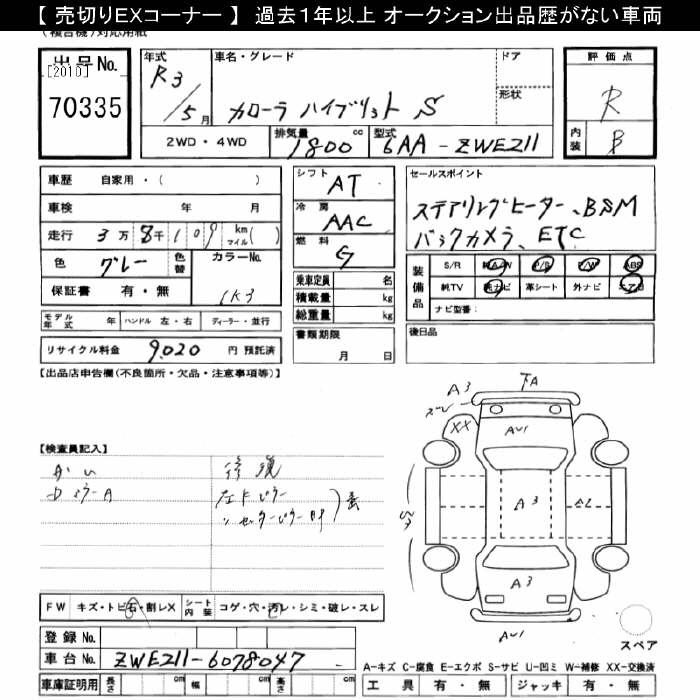 【 売切りEXコーナー 】 過去１年以上 オークション出品歴がない車両
(複合機)対応用紙
出品No.
[2010]
70335
年式
R3/5月
車名・グレード
カローラ ハイブリット S
ドア
形状
2WD・4WD
排気量 1800 cc
型式 6AA-ZWE211
評価点
R
内装 B
車歴 自家用・( )
車検 年 月
走行 3万8千109 km マイル( )
色 グレー 色替
カラーNo. 1K3
保証書 有・無
モデル年式 年 ハンドル 左・右 ディーラー・並行
リサイクル料金 9020 円 預託済
シフト AT
冷房 AAC
燃料 G
乗車定員 名
積載量 kg
総重量 kg
書類期限
月 日
セールスポイント
ステアリングヒーター、BSM
バックカメラ、ETC
装備品
S/R 純A/W P/S P/W ABS
純TV 純ナビ 革シート 外ナビ エアB
ナビ型番：
後日品
【出品店申告欄(不良箇所・欠品・注意事項等)】
【検査員記入】
修復
FW キズ・トビ石・割レX
シート内装 コゲ・穴・汚レ・シミ・破レ・スレ
登録 No.
車台 No. ZWE211-6078047
車庫証明用 長さ cm 幅 cm 高さ cm
A3
XX
AU1
A3
A3
AU1
スペア
A-キズ C-腐食 E-エクボ S-サビ U-凹ミ W-補修 XX-交換済
工具 有・無 ジャッキ 有・無